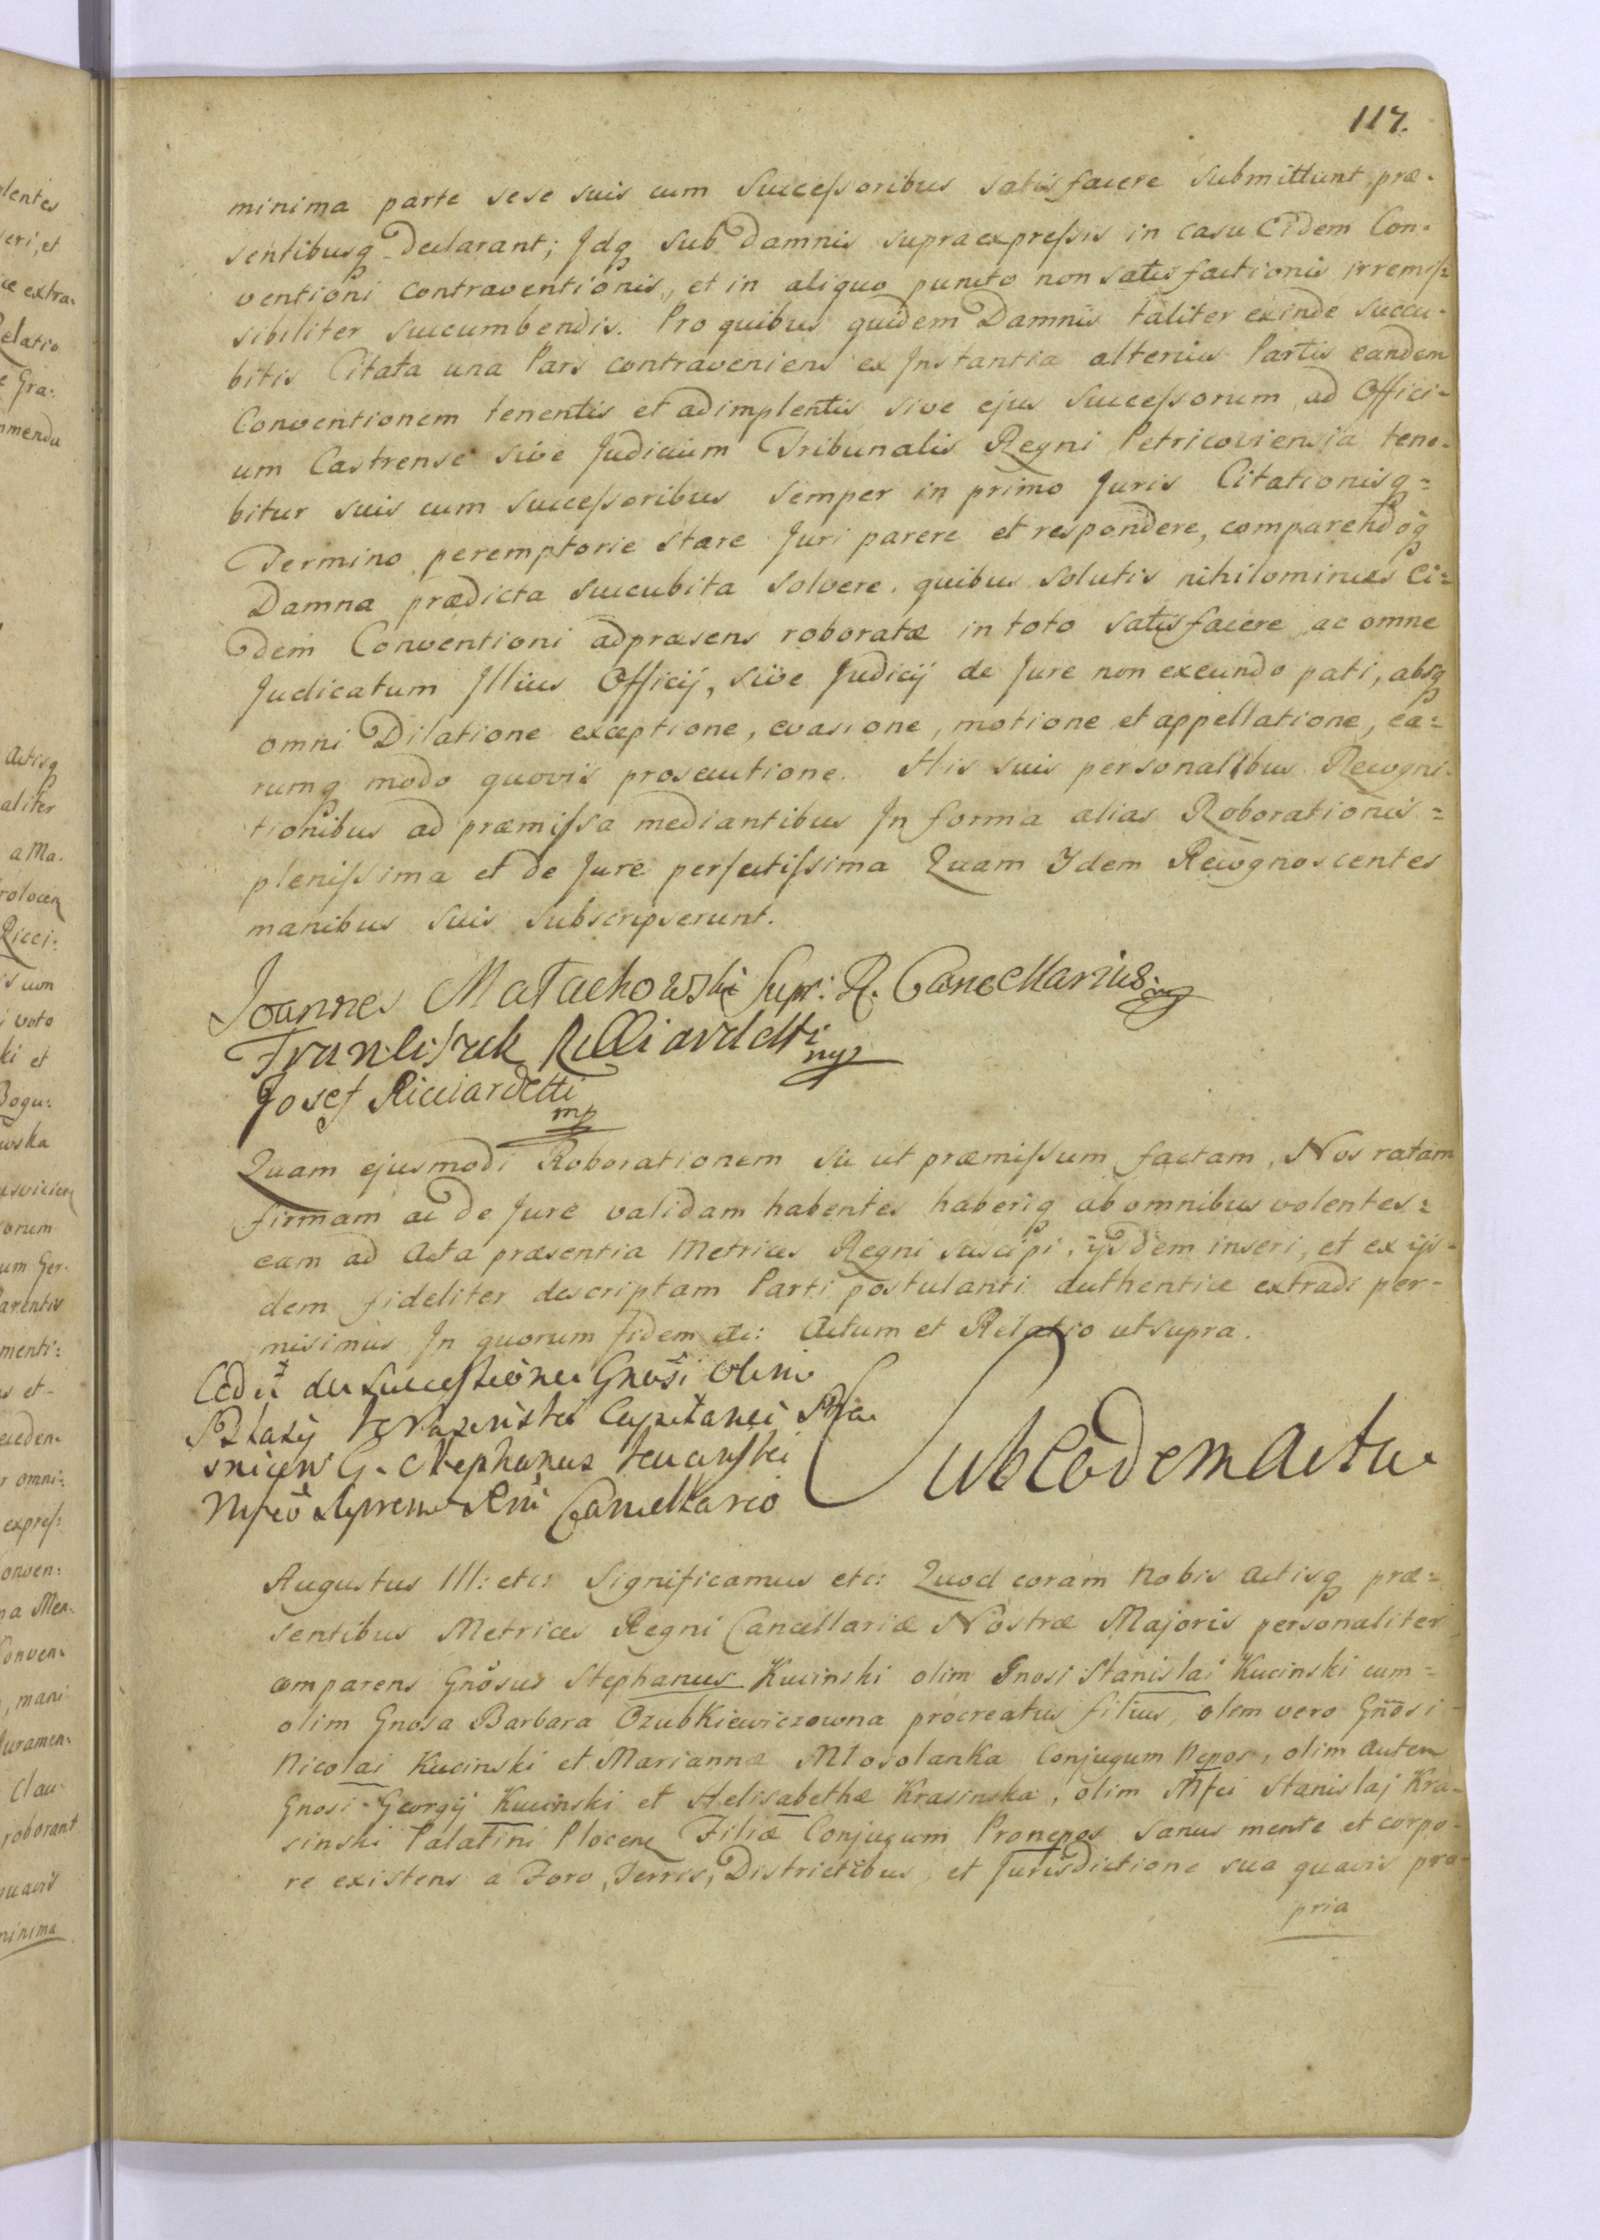 117.
minima parte sese suis cum Succeſsoribus satisfacere Submittunt præ-
sentibusq declarant; Jdq Sub Damnis supraexpreſsis in casu Eidem Con-
ventioni contraventionis, et in aliquo puncto non satisfactionis irremiſ:
sibiliter succumbendis. Pro quibus quidem Damnis taliter exinde succu-
bitis Citata una Pars contraveniens ex Jnstantia alterius Partis eandem
Conventionem tenentis et adimplentis sive ejus Succeſsorum ad Offici-
um Castrense sive Judicium Tribunalis Regni Petricoviensia tene-
bitur suis cum succeſsoribus semper in primo Juris Citationisq=
Termino peremptorie stare Juri parere et respondere, comparendoq
Damna prædicta succubita solvere. quibus solutis nihilominus Ei=
dem Conventioni adpræsens roboratæ in toto satisfacere ac omne
Judicatum Jllius Officij, sive Judicij de Jure non exeundo pati, absq
omni Dilatione exceptione, evasione, motione et appellatione, ea=
rumq modo quovis prosecutione. His suis personalibus Recogni-
tionibus ad præmiſsa mediantibus Jn forma alias Roborationis=
pleniſsima et de Jure perfectiſsima Quam Ydem Recognoscentes
manibus suis subscripserunt.
Joannes Małachowski Supr: R. Cancellarius mp
Franciszek Ricciardetti mp
Josef Ricciardetti
mp
Quam ejusmodi Roborationem sic ut præmiſsum factam, Nos ratam
firmam ac de Jure validam habentes haberiq ab omnibus volentes=
eam ad Acta præsentia Metrices Regni suscipi, ijsdem inseri, et ex ijs-
dem fideliter descriptam Parti postulanti authentice extradi per-
misimus. Jn quorum fidem etc: Actum et Relatio ut supra.
Cedit de Succeſsione Gnosi olim
Capitanei
G. Stephanus Kucinski
Mfco Supremo Rni Cancellario
Sub Eodem Actu
Augustus III: etc: Significamus etc: Quod coram nobis Actisq præ=
sentibus Metrices Regni Cancellariæ Nostræ Majoris personaliter
comparens Gnosus Stephanus Kucinski olim Gnosi Stanislai Kucinski cum=
olim Gnosa Barbara Ozubkiewiczowna procreatus filius, olim vero Gnosi-
Nicolai Kucinski et Mariannæ Młosolanka Conjugum Nepos, olim autem
Gnosi Georgij Kucinski et Helisabethæ Krasinska, olim Mfci Stanislaj Kra-
sinski Palatini Plocen Filiæ Conjugum Pronepos Sanus mente et corpo-
re existens a Foro, Terris, Districtibus, et Jurisdictione sua quavis pro-
pria